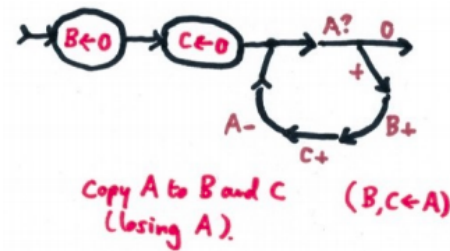 B←0
C←0
A?
0
+
B+
C+
A-
Copy A to B and C
(losing A).
(B,C←A)